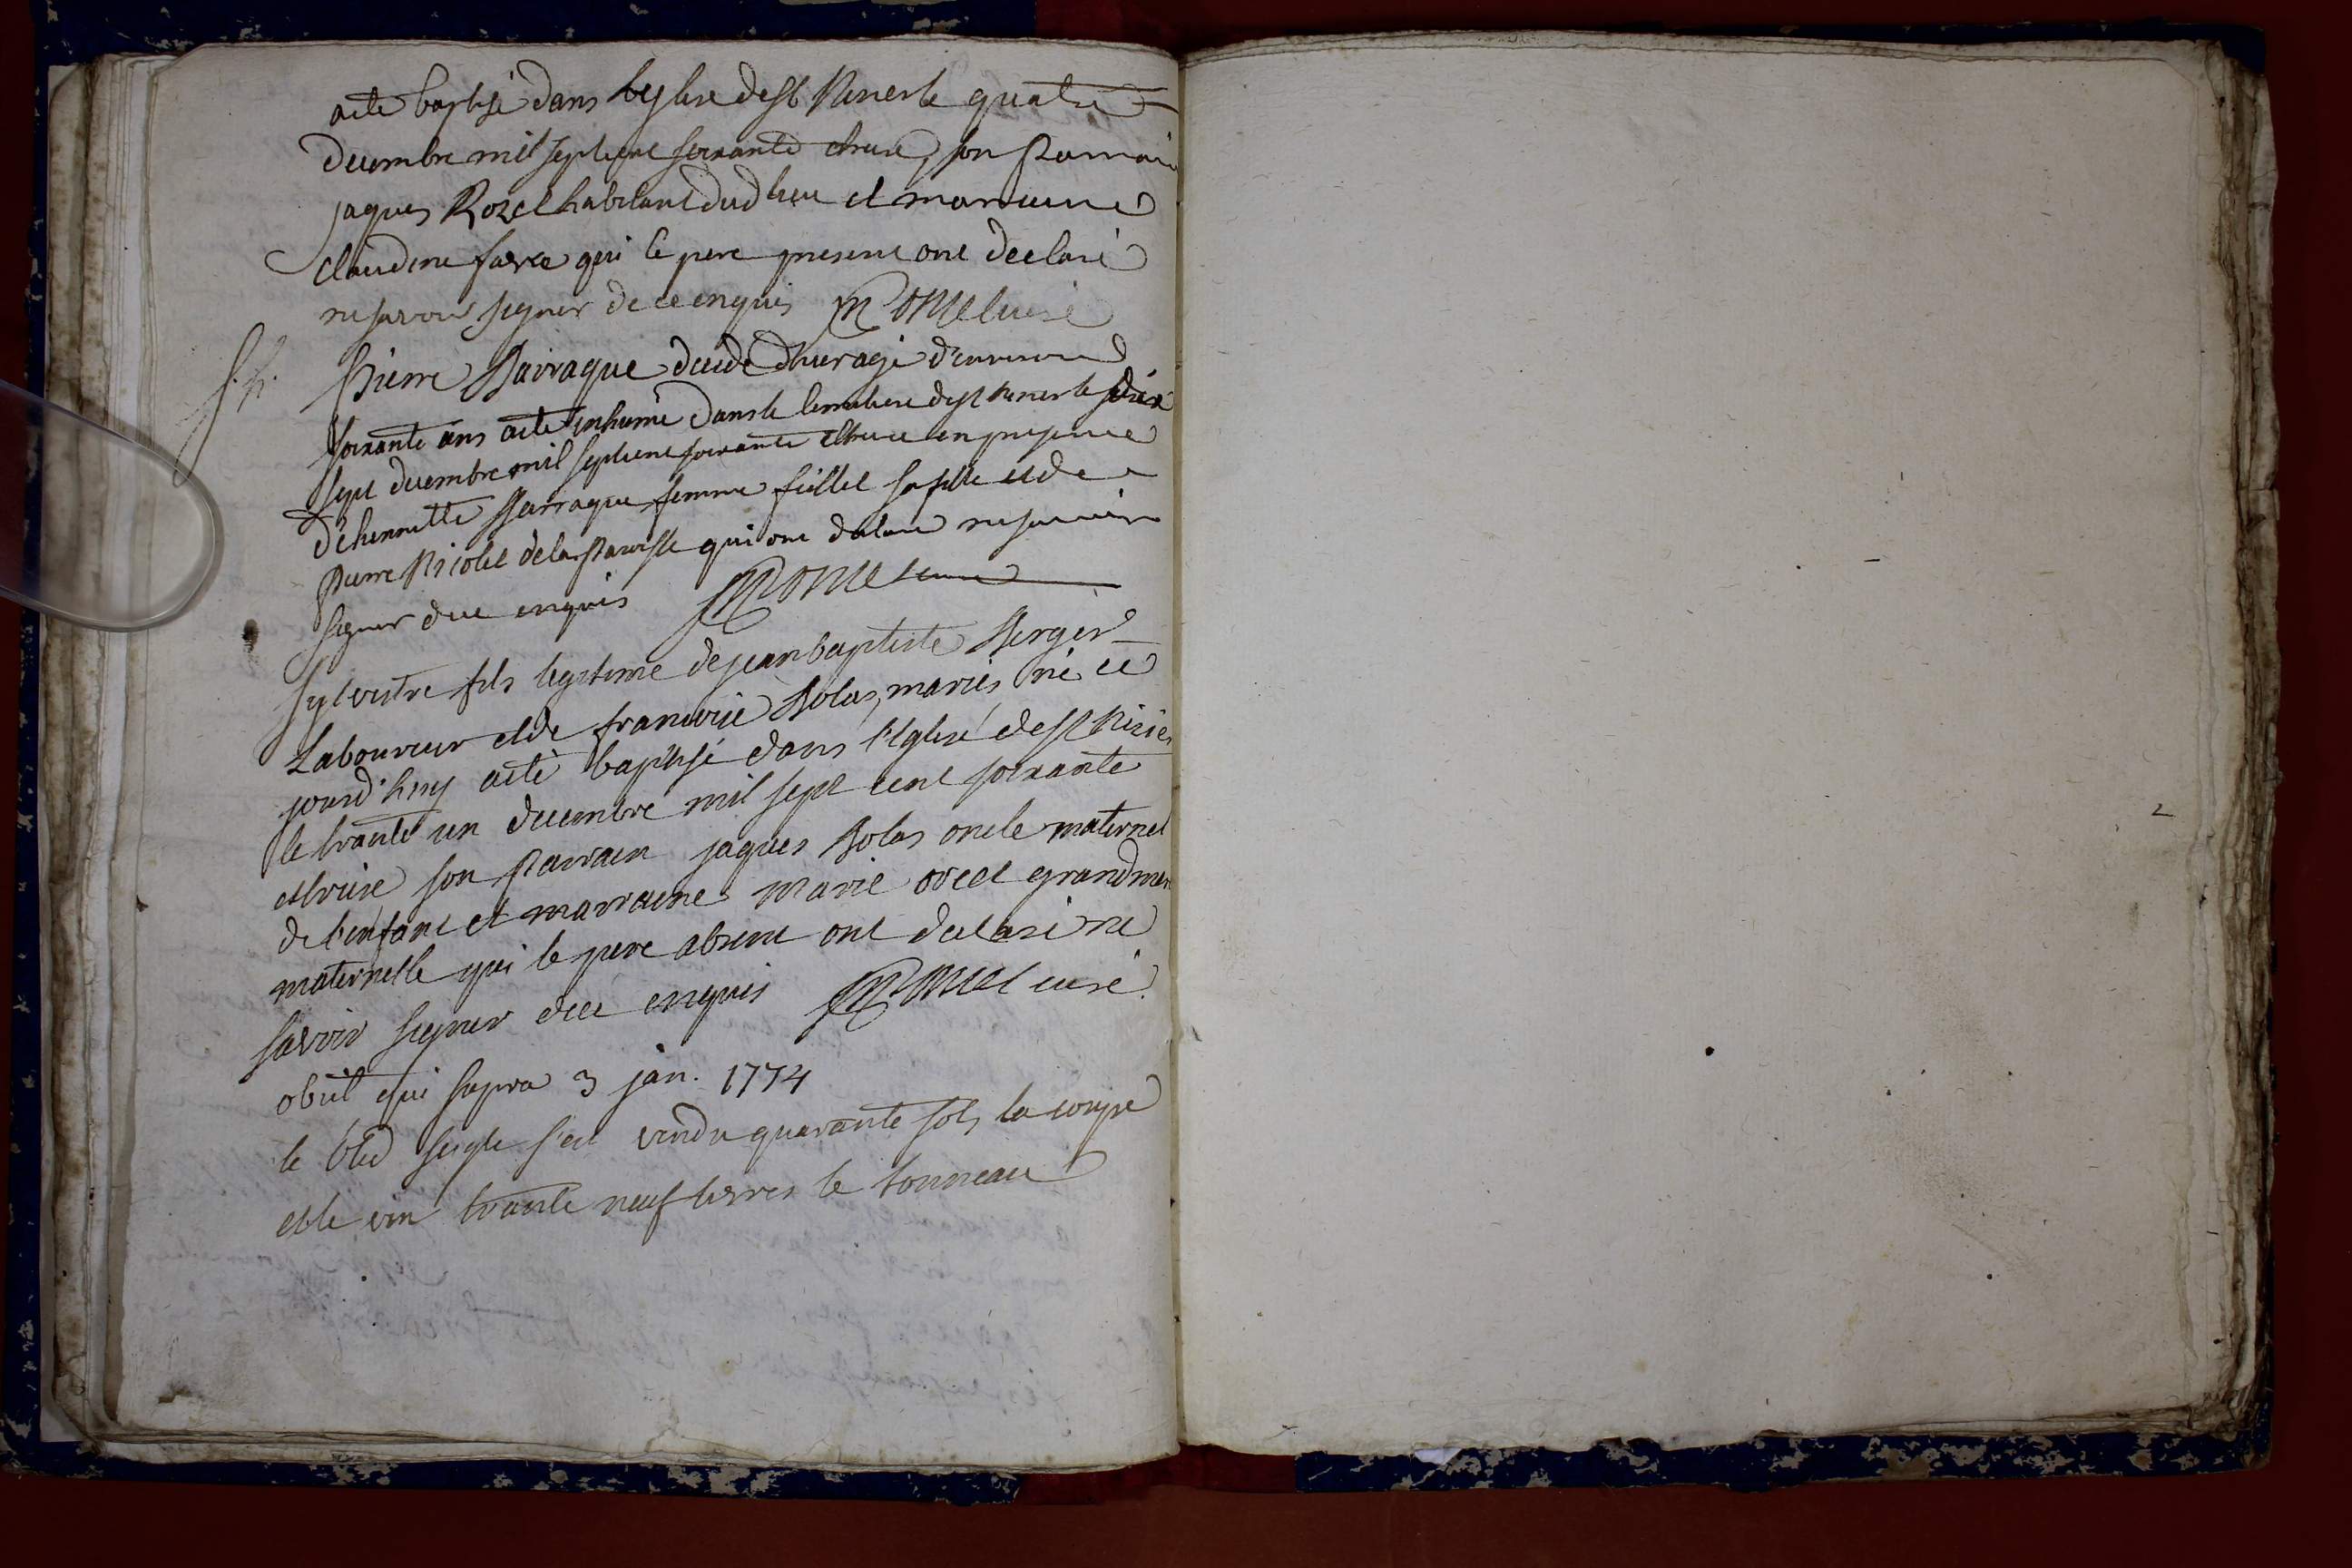 acté baptisé dans leglise de st Nizier le quatre
decembre mil sept cent soixante etreize, son Parrain
jaques Rozel habitant dud lieu et marraine
Claudine favre qui le pere present ont declaré
ne savoir signer de ce enquis Monnet curé
f. h. Pierre Barraque decedé d'hier agé d'environ
soixante ans acté inhumé dans le cimetiere de st Nizier le dix
sept decembre mil sept cent soixante etreize en presence
d'ehennette Barraque femme fillet sa fille et de
pierre Nicolet de la Paroisse qui ont declaré ne savoir
signer de ce enquis Monnet curé
sylvestre fils legitime de jean baptiste Berger
Laboureur et de francoise Bolas, mariés, né ce
jourd'huy acté baptisé dans l'Eglise de st Nizier
le trante un decembre mil sept cent soixante
etreize son Parrain jaques Bolas oncle maternel
de l'enfant et marraine marie grandmere
maternelle qui le pere absent ont declaré ne
savoir signer de ce enquis Monnet curé
obiit qui supra 3 jan. 1774
le bled seigle s'est vendu quarante sols la coupe
et le vin trante neuf livres le tonneau
2